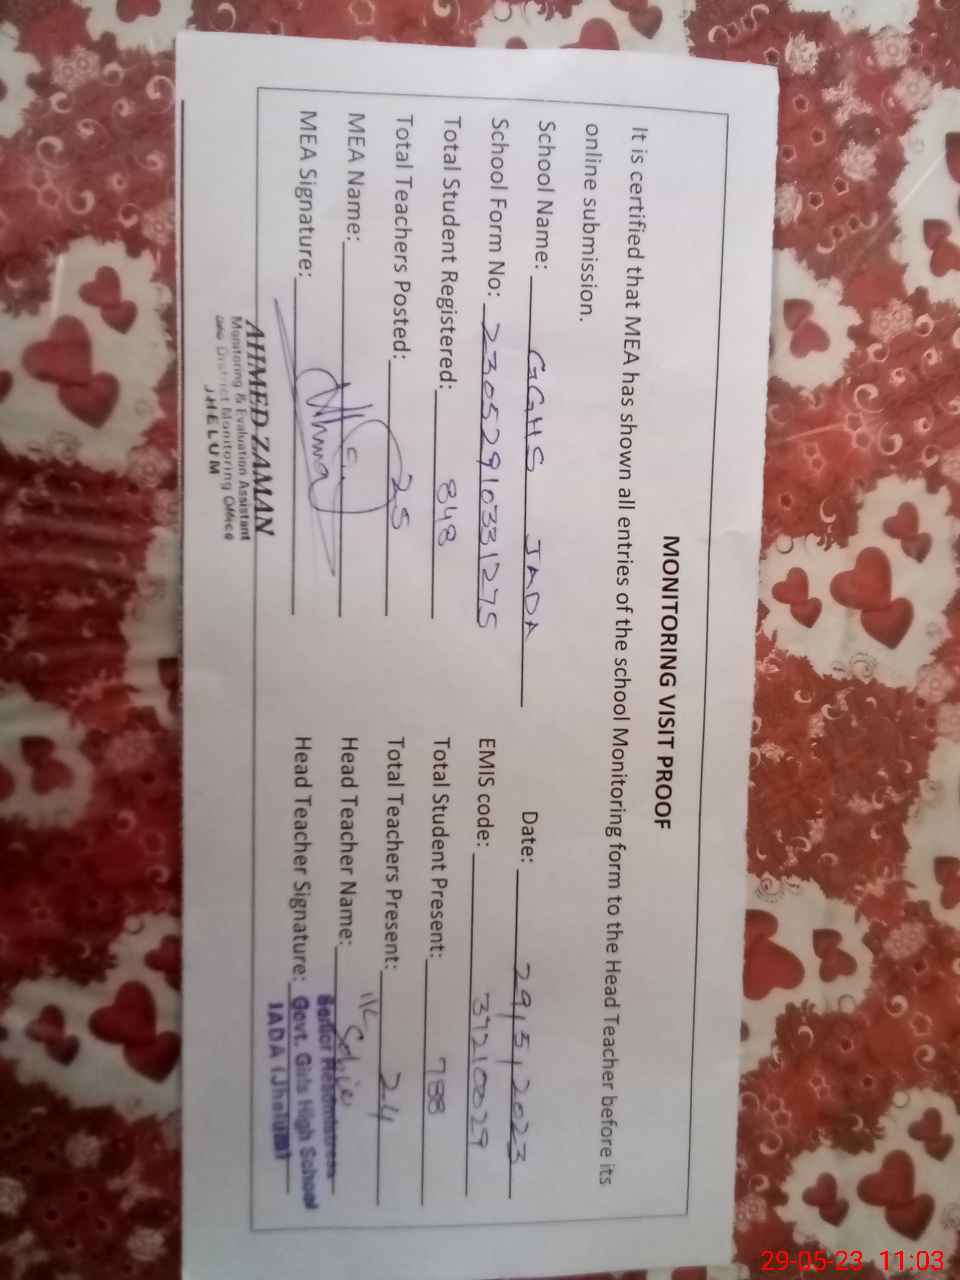 MONITORING VISIT PROOF
It is certified that MEA has shown all entries of the school Monitoring form to the Head Teacher before its
online submission.
School Name: GGHS JADA Date: 29/5/2023
School Form No: 230529103312 75 EMIS code: 37210029
Total Student Registered: 848 Total Student Present: 788
Total Teachers Posted: 25 Total Teachers Present: 24
MEA Name: Head Teacher Name:
MEA Signature: Head Teacher Signature:
AHMED ZAMAN
Monitoring & Evaluation Assistant
District Monitoring Office
JHELUM
Senior Headmistress
Govt. Girls High School
JADA (Jhelum)
29-05-23 11:03